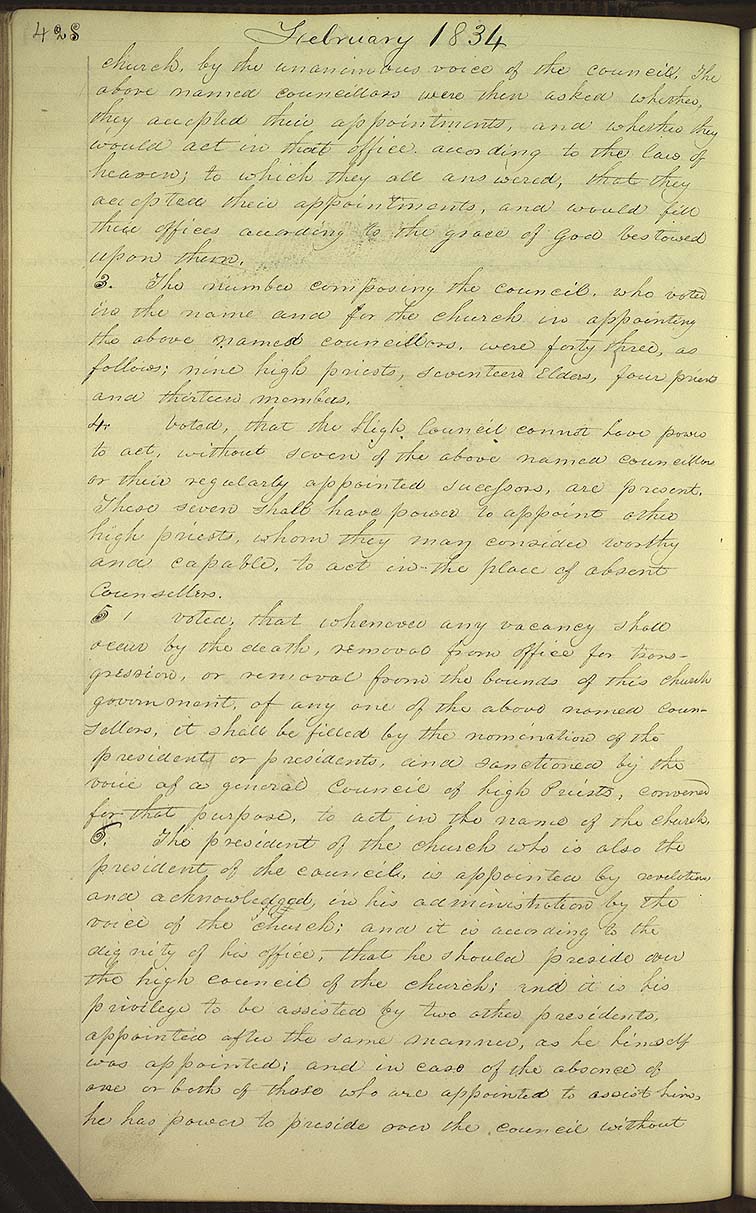 428
February 1834
church, by the unanimous voice of the council. The
above named councillors were then asked whether,
they accepted their appointments, and whether they
would act in that office according to the law of
heaven; to which they all answered, that they
accepted their appointments, and would fill
their offices according to the grace of God bestowed
upon them.
3. The number composing the council, who voted
in the name and for the church in appointing
the above named councillors, were forty three, as
follows; nine high priests, seventeen Elders, four priests
and thirteen members.
4. Voted, that the High Council cannot have power
to act, without seven of the above named councillors
or their regularly appointed sucessors, are present.
These seven shall have power to appoint other
high priests, whom they may consider worthy
and capable, to act in the place of absent
Counsellors.
5 voted, that whenever any vacancy shall
occur by the death, removal from office for trans-
gression, or removal from the bounds of this church
government, of any one of the above named coun-
sellors, it shall be filled by the nomination of the
presidents or presidents, and sanctioned by the
voice of a general Council of high Priests, convened
for that purpose, to act in the name of the church.
6. The president of the church who is also the
president of the council, is appointed by revelation
and acknowledged, in his administration by the
voice of the church; and it is according to the
dignity of his office, that he should preside over
the high council of the church; and it is his
privilege to be assisted by two other presidents,
appointed after the same manner, as he himself
was appointed; and in case of the absence of
one or both of those who are appointed to assist him,
he has power to preside over the council without